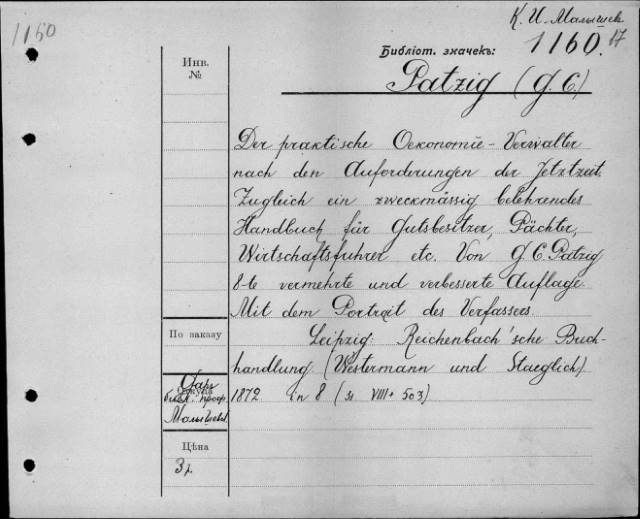 1160
К. И. Малышев
Библіот. значекъ: 1160. 17
Patzig (G. C.)
Инв.
№
Der praktische Oekonomie-Verwalter
nach den Anforderungen der Jetztzeit.
Zugleich ein zweckmässig belehrendes
Handbuch für Gutsbesitzer, Pächter,
Wirtschaftsfuhrer etc. Von G. C. Patzig
8-te vermehrte und verbesserte Auflage.
Mit dem Portrait des Verfassers.
Leipzig. Reichenbach'sche Buch-
handlung. (Westermann und Staeglich)
1872. in 8 (VIII + 503)
По заказу
Даръ
библ. проф.
Малышева
Цѣна
3 р.